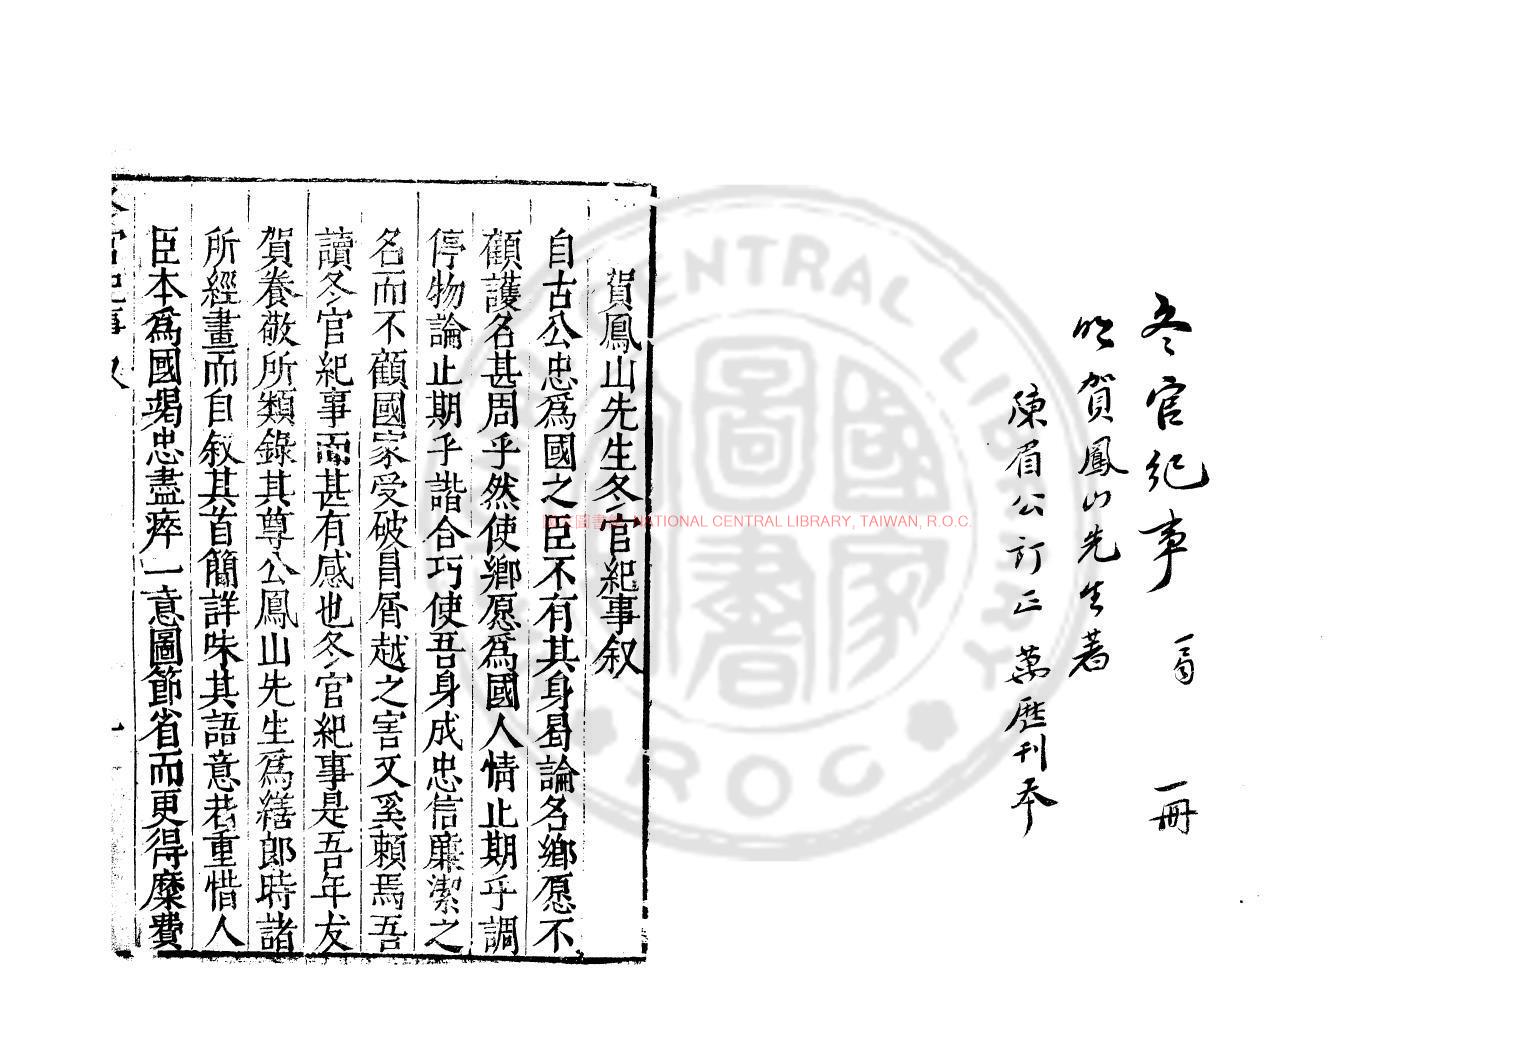 冬官紀事 一冊
明賀鳳山先生著
陳眉公訂正 萬歷刊本
賀鳳山先生冬官紀事叙
自古公忠爲國之臣不有其身曷論名鄉愿不
顧護名甚周乎然使鄉愿爲國人情止期乎調
停物論止期乎諧合巧使吾身成忠信廉潔之
名而不顧國家受破冒屑越之害又奚賴焉吾
讀冬官紀事而甚有感也冬官紀事是吾年友
賀養敬所類錄其尊公鳳山先生爲繕郎時諸
所經畫而自叙其首簡詳味其語意若重惜人
臣本爲國竭忠盡瘁一意圖節省而更得糜費
冬官紀事 叙 一
國家圖書館 NATIONAL CENTRAL LIBRARY, TAIWAN, R.O.C.
NATIONAL CENTRAL LIBRARY
ROC
國家圖書館